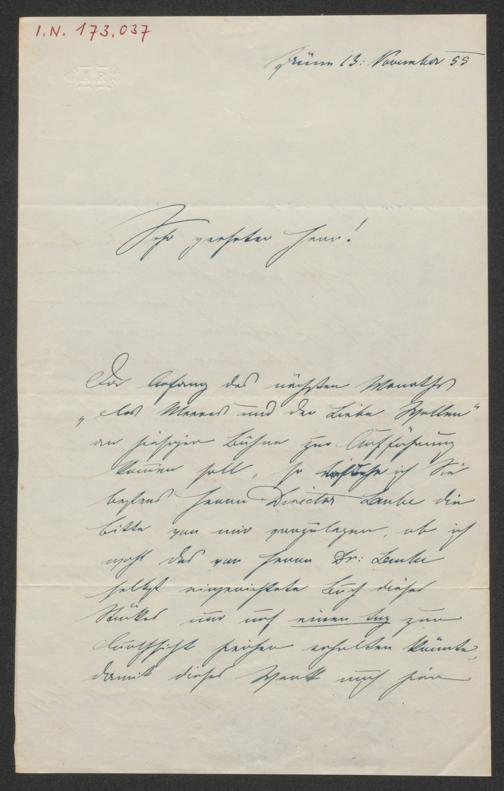 I.N. 173.037
Brünn 13: November 55
Sehr geehrter Herr!
Da Anfang des nächsten Monaths
„des Meeres und der Liebe Wellen"
an hiesiger Bühne zur Aufführung
kommen soll, so ersuche ich Sie
bestens Herrn Director Laube die
Bitte von mir vorzulegen, ob ich
nicht das von Herrn Dr: Laube
selbst eingerichtete Buch dieses
Stückes nur auf einen Tag zur
Durchsicht hieher erhalten könnte,
damit dieses Werk auch hier